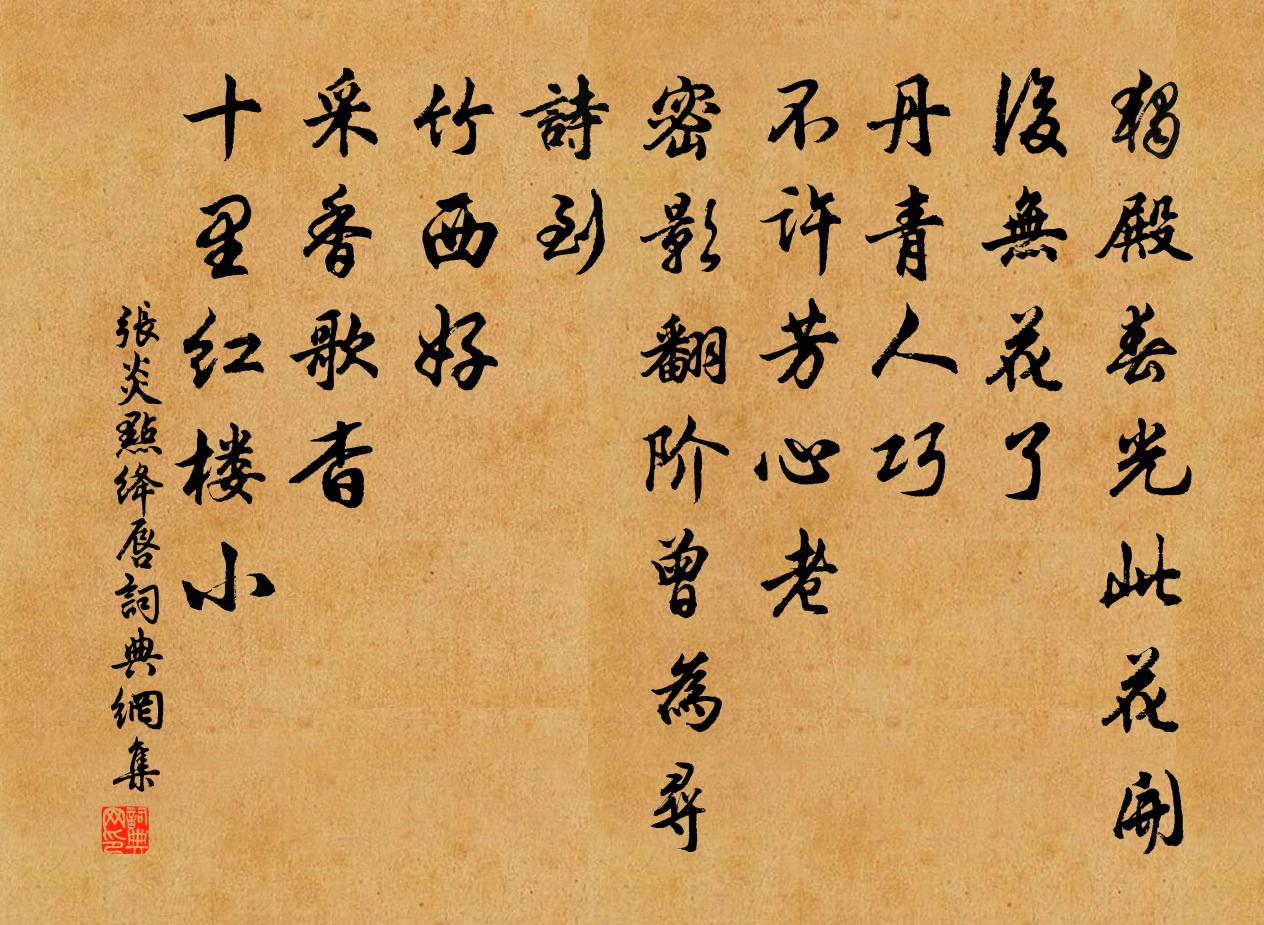 獨殿春光此花開
後無花了
丹青人巧
不許芳心老
密影翻阶曾為尋
詩到
竹西好
采香歌杳
十里红楼小
張炎點絳唇詞典網集
詞典网印